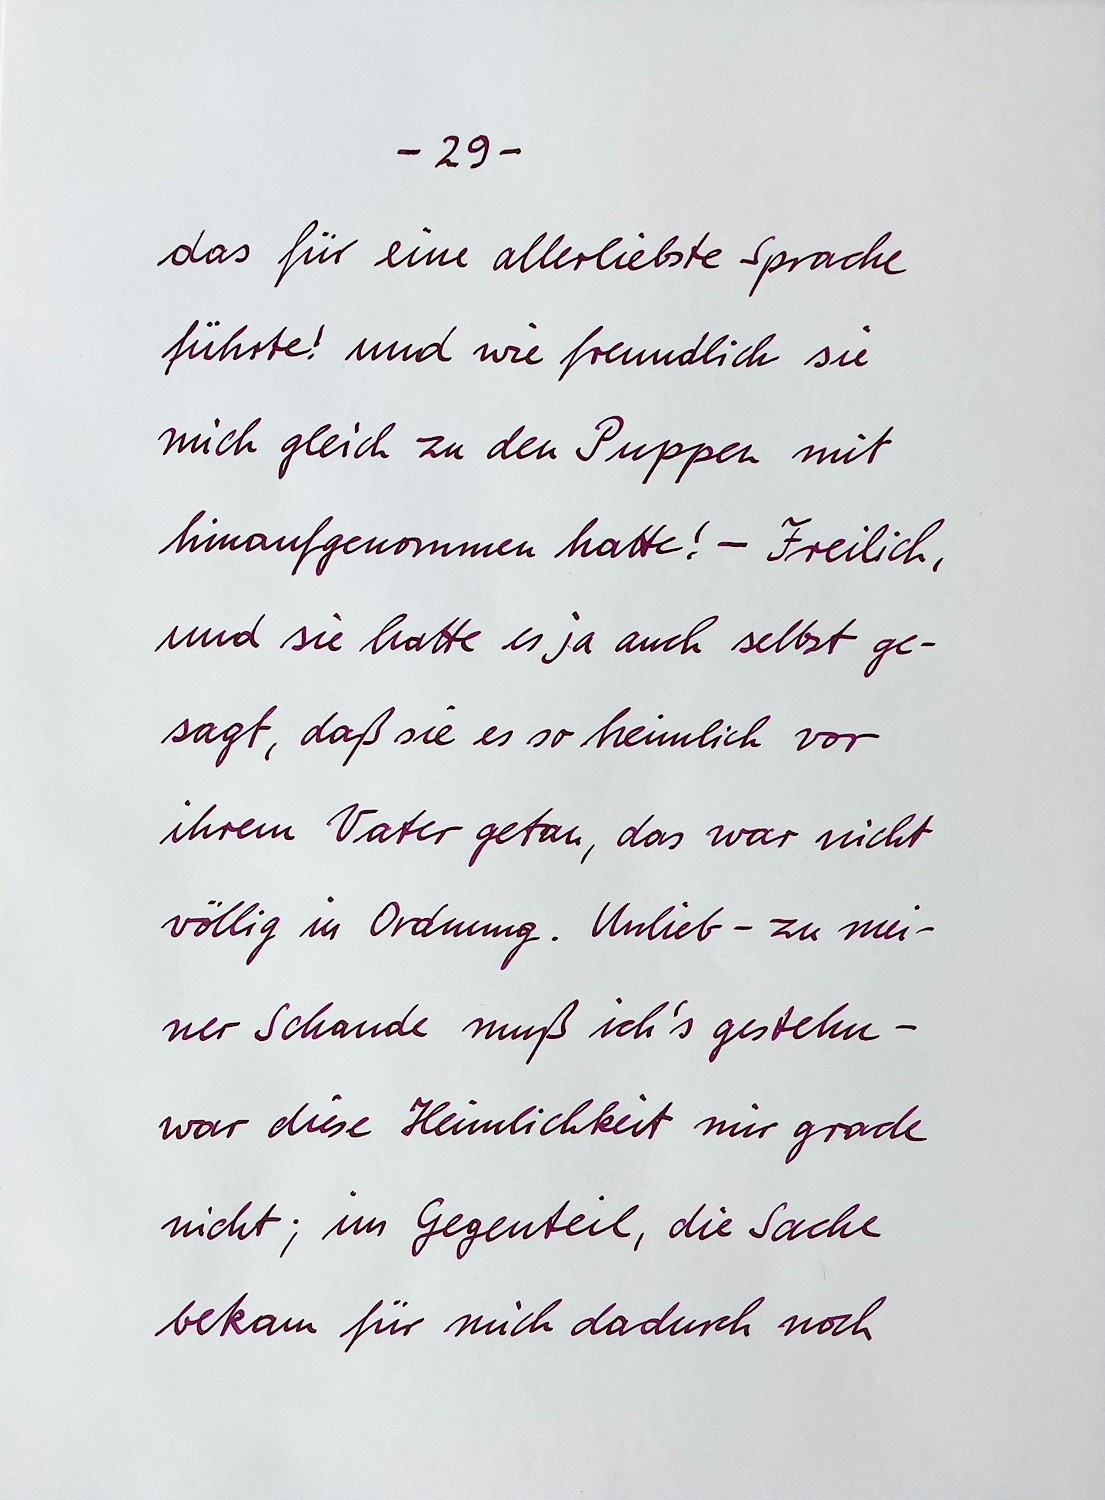 - 29 -
das für eine allerliebste Sprache
führte! und wie freundlich sie
mich gleich zu den Puppen mit
hinaufgenommen hatte! – Freilich,
und sie hatte es ja auch selbst ge-
sagt, daß sie es so heimlich vor
ihrem Vater getan, das war nicht
völlig in Ordnung. Unlieb – zu mei-
ner Schande muß ich's gestehn –
war diese Heimlichkeit mir grade
nicht; im Gegenteil, die Sache
bekam für mich dadurch noch